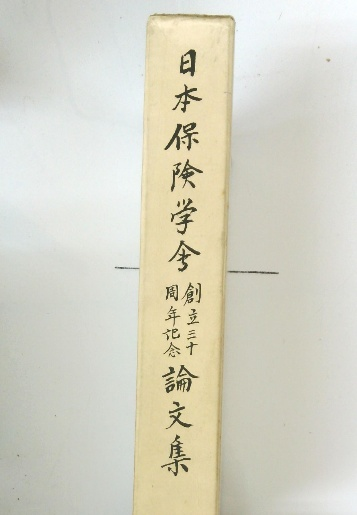 日本保険学会
創立三十
周年記念
論文集